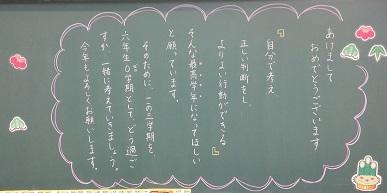 あけまして
おめでとうございます
自分で考え
正しい判断をし、
よりよい行動ができる
そんな最高学年になってほしい
と願っています。
そのために、この三学期を、
六年生0学期として、どう過ご
すか一緒に考えていきましょう。
今年もよろしくお願いします。